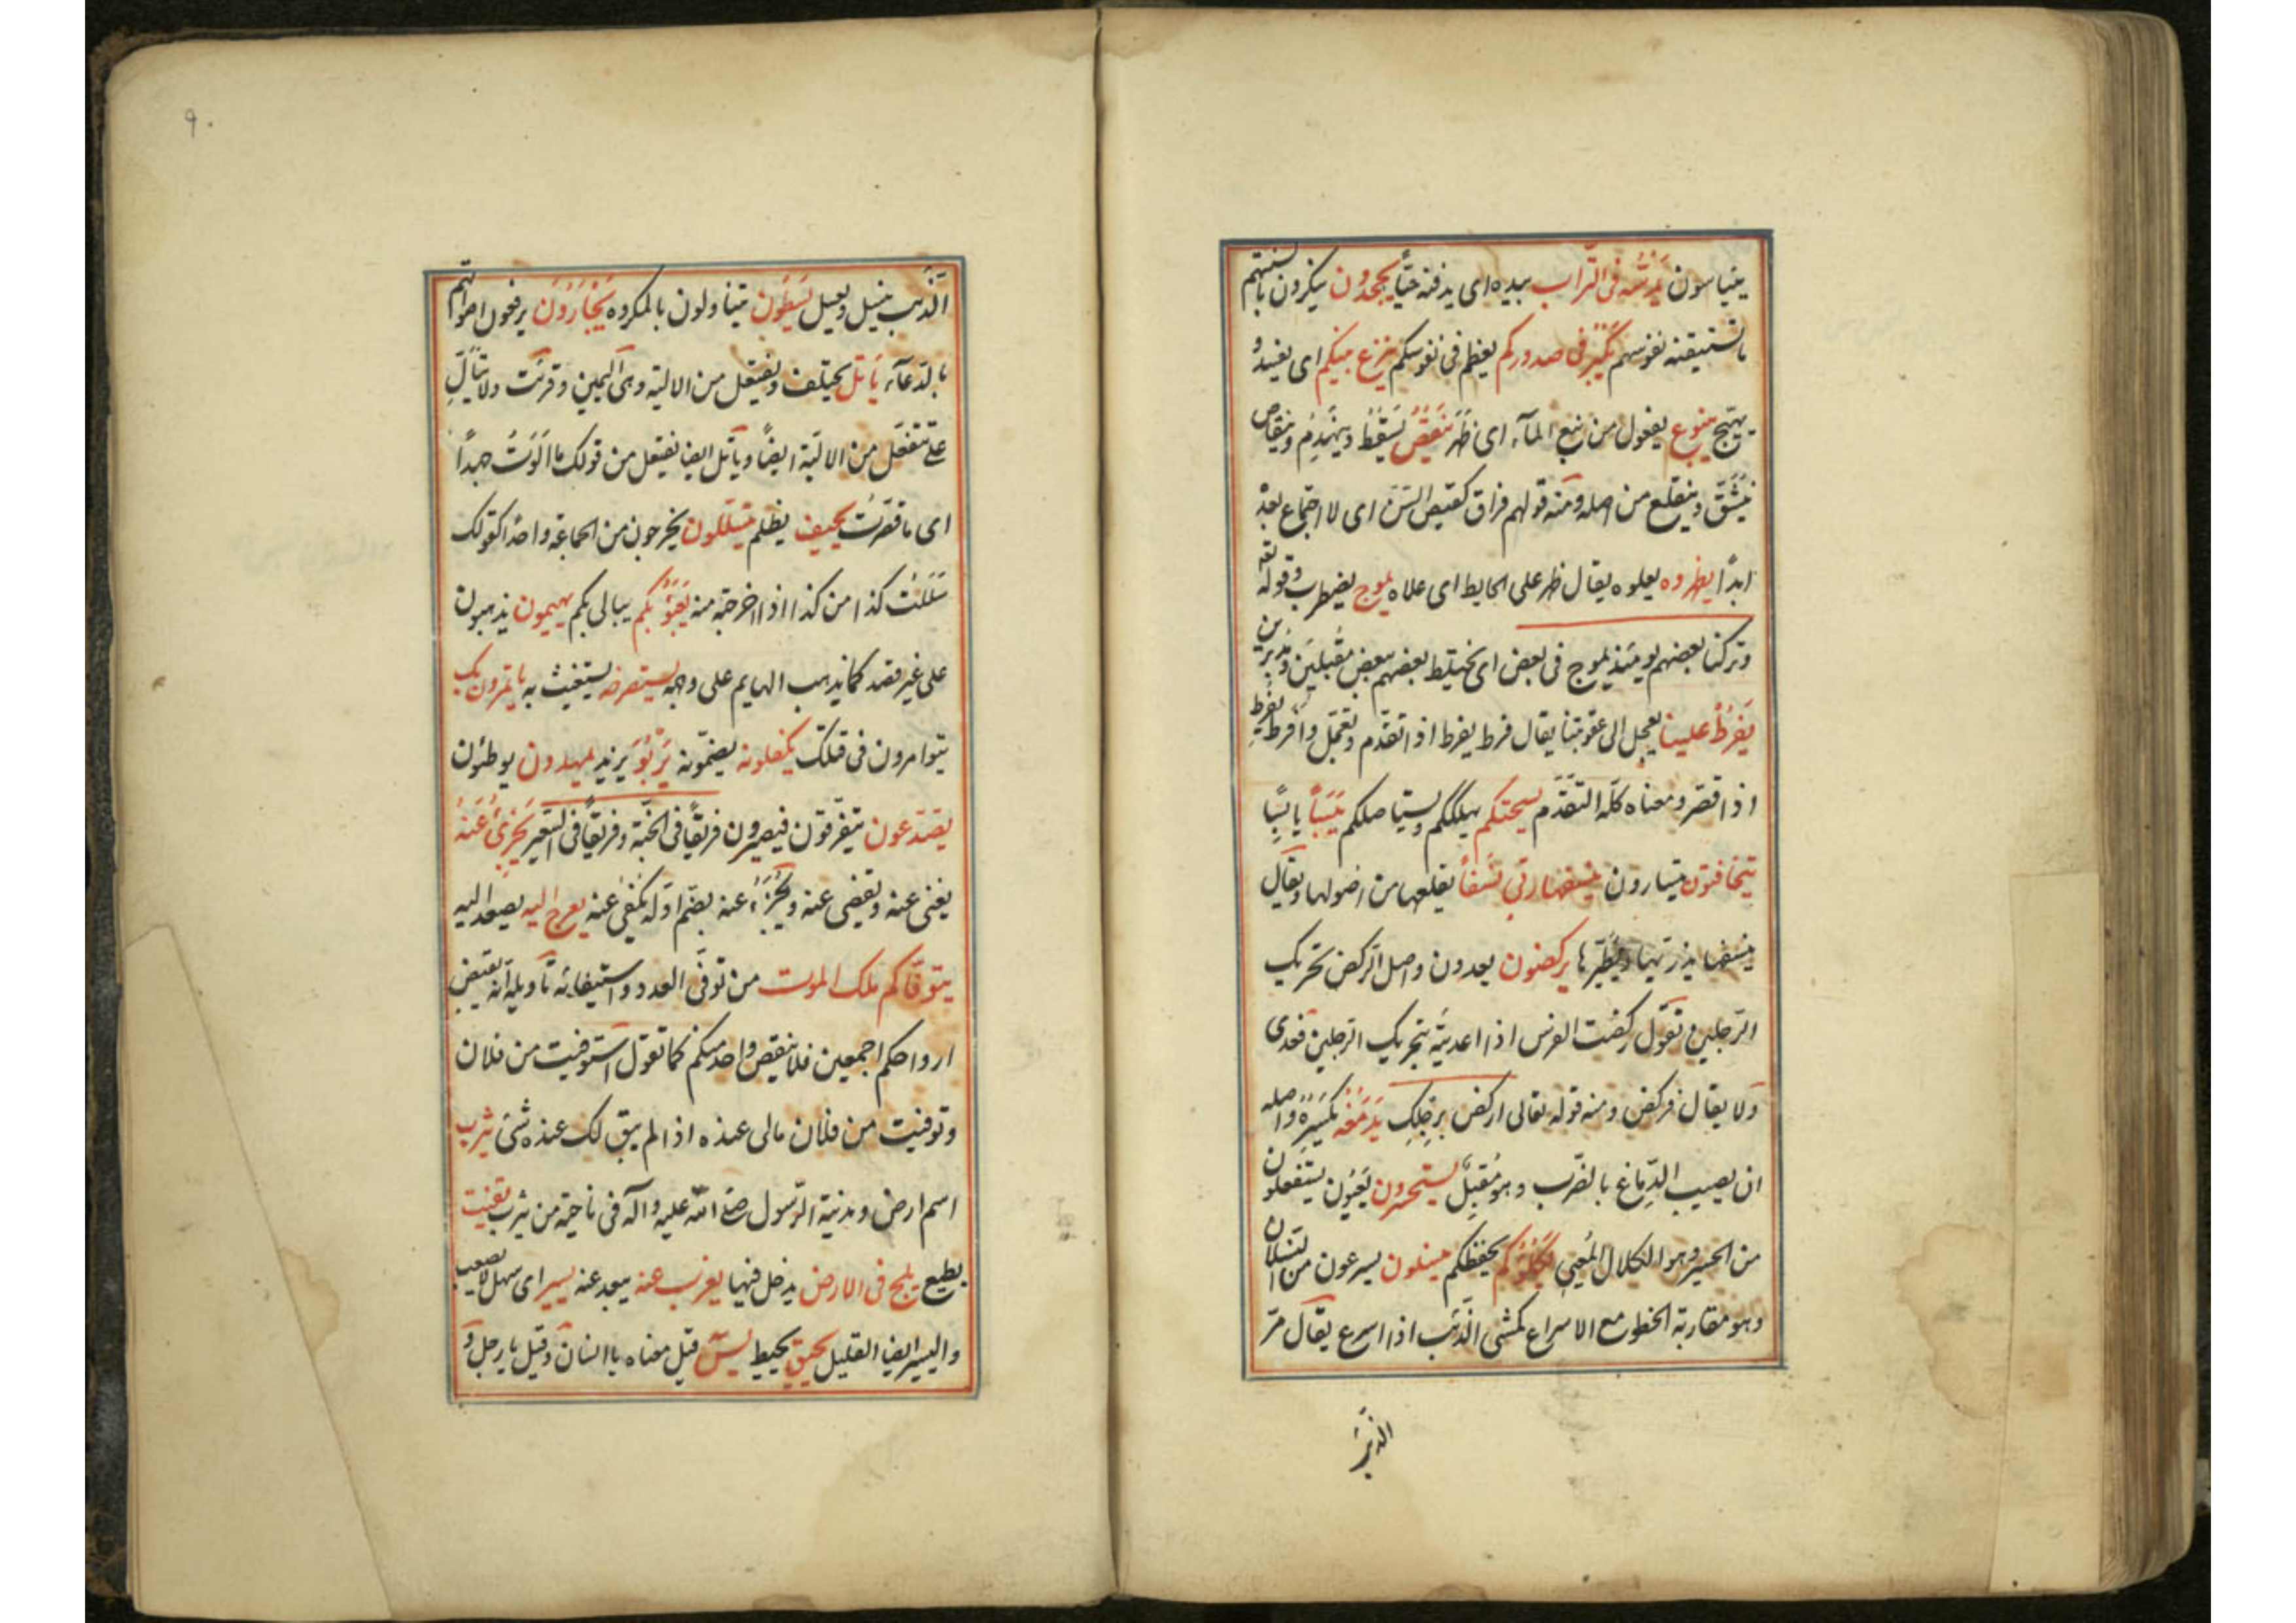 يتياسون يدسه فى التراب بيديه اى يدفنه حيّاً يجحدون ينكرون بالسنتهم
ما تستيقنه نفوسهم يكبر فى صدوركم يعظم فى نفوسكم ينزغ بينكم اى يفسد و
يهيّج ينبوع يفعول من نبع المآء اى ظَهَرَ ينقضّ يسقط وينهدم وينقاض
ينشقّ وينقلع من اصله ومنه قولهم فراق كقيض السنّ اى لا اجتماع بعده
ابداً يظهروه يعلوه يقال ظهر على الحايط اى علاه يموج يضطرب وقوله تعه
وتركنا بعضهم يومئذ يموج فى بعض اى يختلط بعضهم ببعض مقبلين ومدبرين
يَفرُطُ علينا يعجل الى عقوبتنا يقال فرط يفرط اذا تقدّم وتعجّل وافرط يُفرِط
اذا قصّر ومعناه كلّه التقدّم يسحتكم يهلككم ويستاصلكم يَبَساً يابساً
يتخافتون يتسارون ينسفها ربّى نسفاً يقلعها من اصولها ويقال
ينسفها يذرّيها ويطيّرها يركضون يعدون واصل الركض تحريك
الرّجلين وتقول ركضت الفرس اذا اعديته بتحريك الرجلين فعدى
ولا يقال فركض ومنه قوله تعالى اركض برجلك يَدمَغُه يكسره واصله
ان يصيب الدّماغ بالضّرب وهو مُقتِل يستحسرون يَعيَون يستفعلون
من الحسير وهو الكلال المُعيى يكلؤكم يحفظكم ينسلون يسرعون من النسلان
وهو مقاربة الخطو مع الاسراع كمشى الذّئب اذا اسرع يقال مرّ
الذئب
٩٠
الذئب ينسل ويعسل يسطون يتناولون بالمكروه يجأرون يرفعون اصواتهم
بالدعآء يأتل يحتلف ويفتعل من الالية وهى اليمين وقرئت ولا يتألّ
على يتفعّل من الاليّة ايضاً ويأتل ايضا يفتعل من قولك ما الوت جهداً
اى ما قصّرت يحيف يظلم يتسلّلون يخرجون من الجماعة واحداً كقولك
سَلَلت كذا من كذا اذا اخرجته منه يعبؤ بكم يبالى بكم يهيمون يذهبون
على غير قصد كما يذهب الهايم على وجهه يستصرخه يستغيث به يأتمرون بك
يتوامرون فى قتلك يكفلونه يضمّونه يَربُوَ يزيد يمهدون يوطئون
يصّدّعون يتفرّقون فيصيرون فريقاً فى الجنّة وفريقاً فى السعير يَجزى عنه
يغنى عنه ويقضى عنه ويُجزئ عنه بضمّ اوّله يكفى عنه يعرج اليه يصعد اليه
يتوفّاكم ملك الموت من توفّى العدد واستيفائه تأويله انّه يقبض
ارواحكم اجمعين فلا ينقص واحد منكم كما تقول استوفيت من فلان
وتوفيت من فلان مالى عنده اذا لم يبق لك عنده شئ يثرب
اسم ارض ومدينة الرّسول صلى الله عليه وآله فى ناحية من يثرب يقنت
يطيع يلج فى الارض يدخل فيها يعزب عنه يبعد عنه يسير اى سهل لا يصعب
واليسير ايضا القليل يحيق يحيط يسٓ قيل معناه يا انسان وقيل يا رجل و